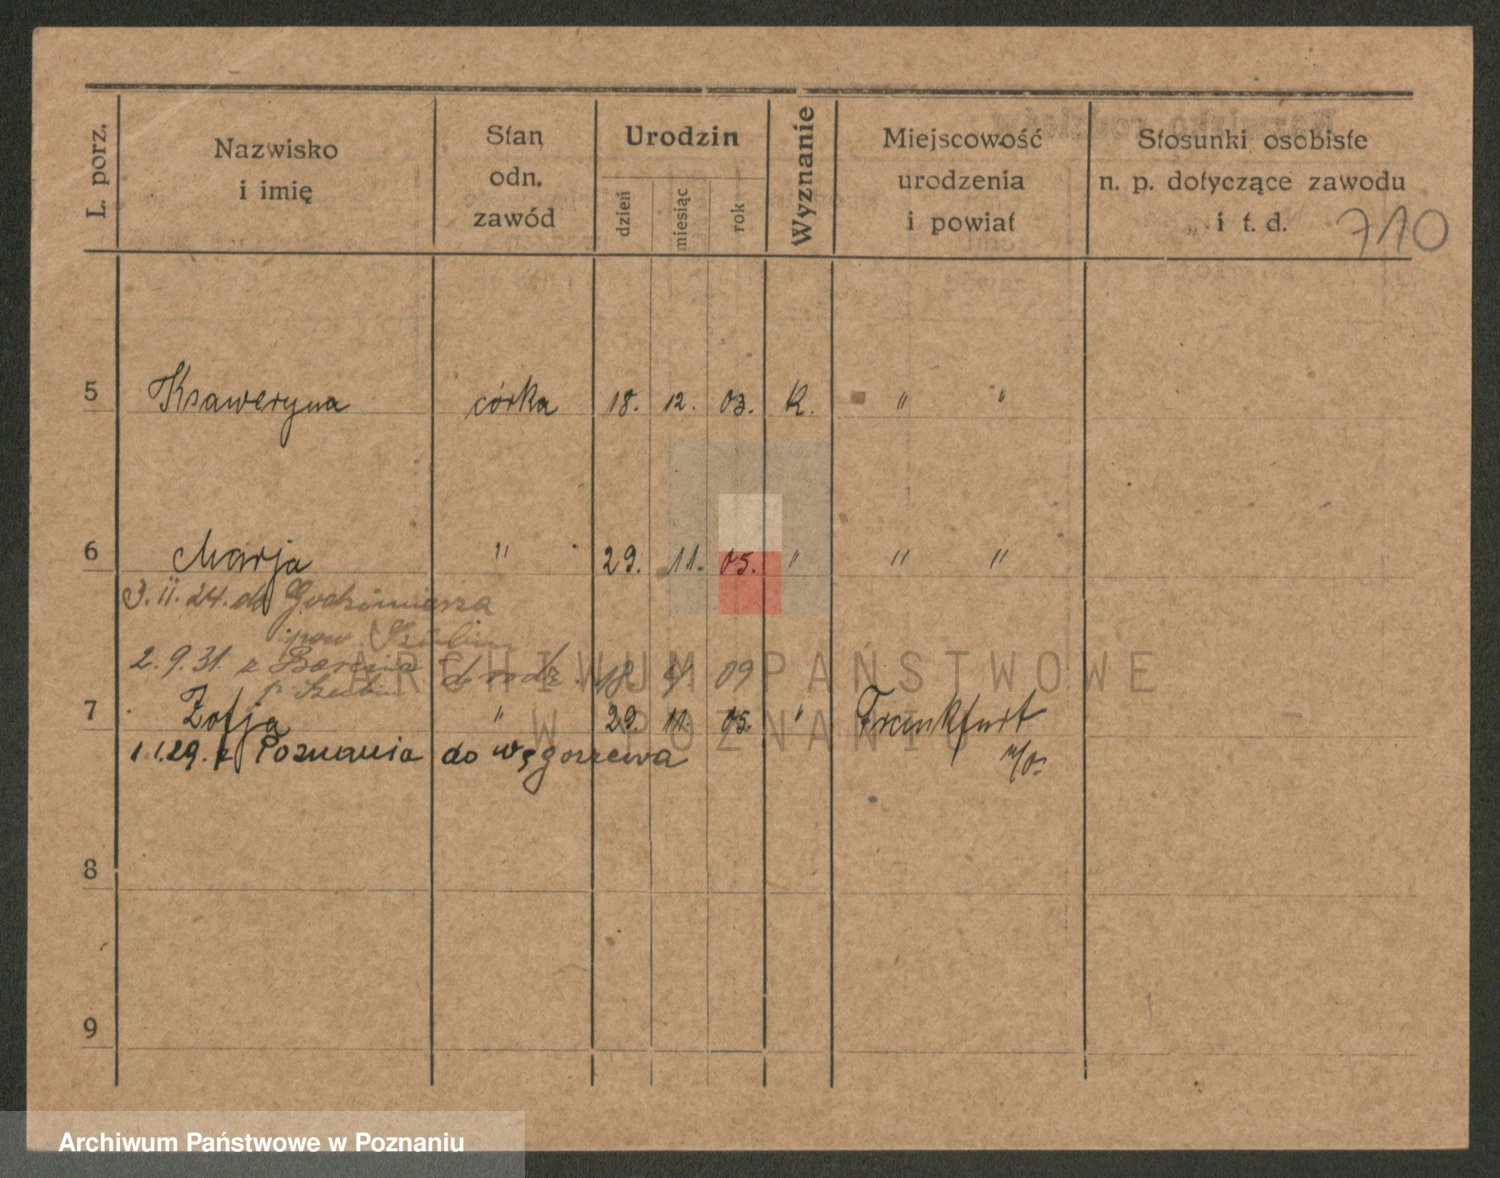 L. porz.
Nazwisko
i imię
Stan
odn.
zawód
Urodzin
dzień
miesiąc
rok
Wyznanie
Miejscowość
urodzenia
i powiat
Stosunki osobiste
n. p. dotyczące zawodu
i t. d.
710
5 Ksaweryna córka 18. 12. 03. K. " "
6 Marja " 29. 11. 05. " " "
3.II.24. do
pow.
2.9.31. z do rodz. 18. 09
7 Zofja " 29. 11. 05. " Frankfurt
n/O.
1.1.29. z Poznania do Węgorzewa
8
9
ARCHIWUM PAŃSTWOWE
W POZNANIU
Archiwum Państwowe w Poznaniu